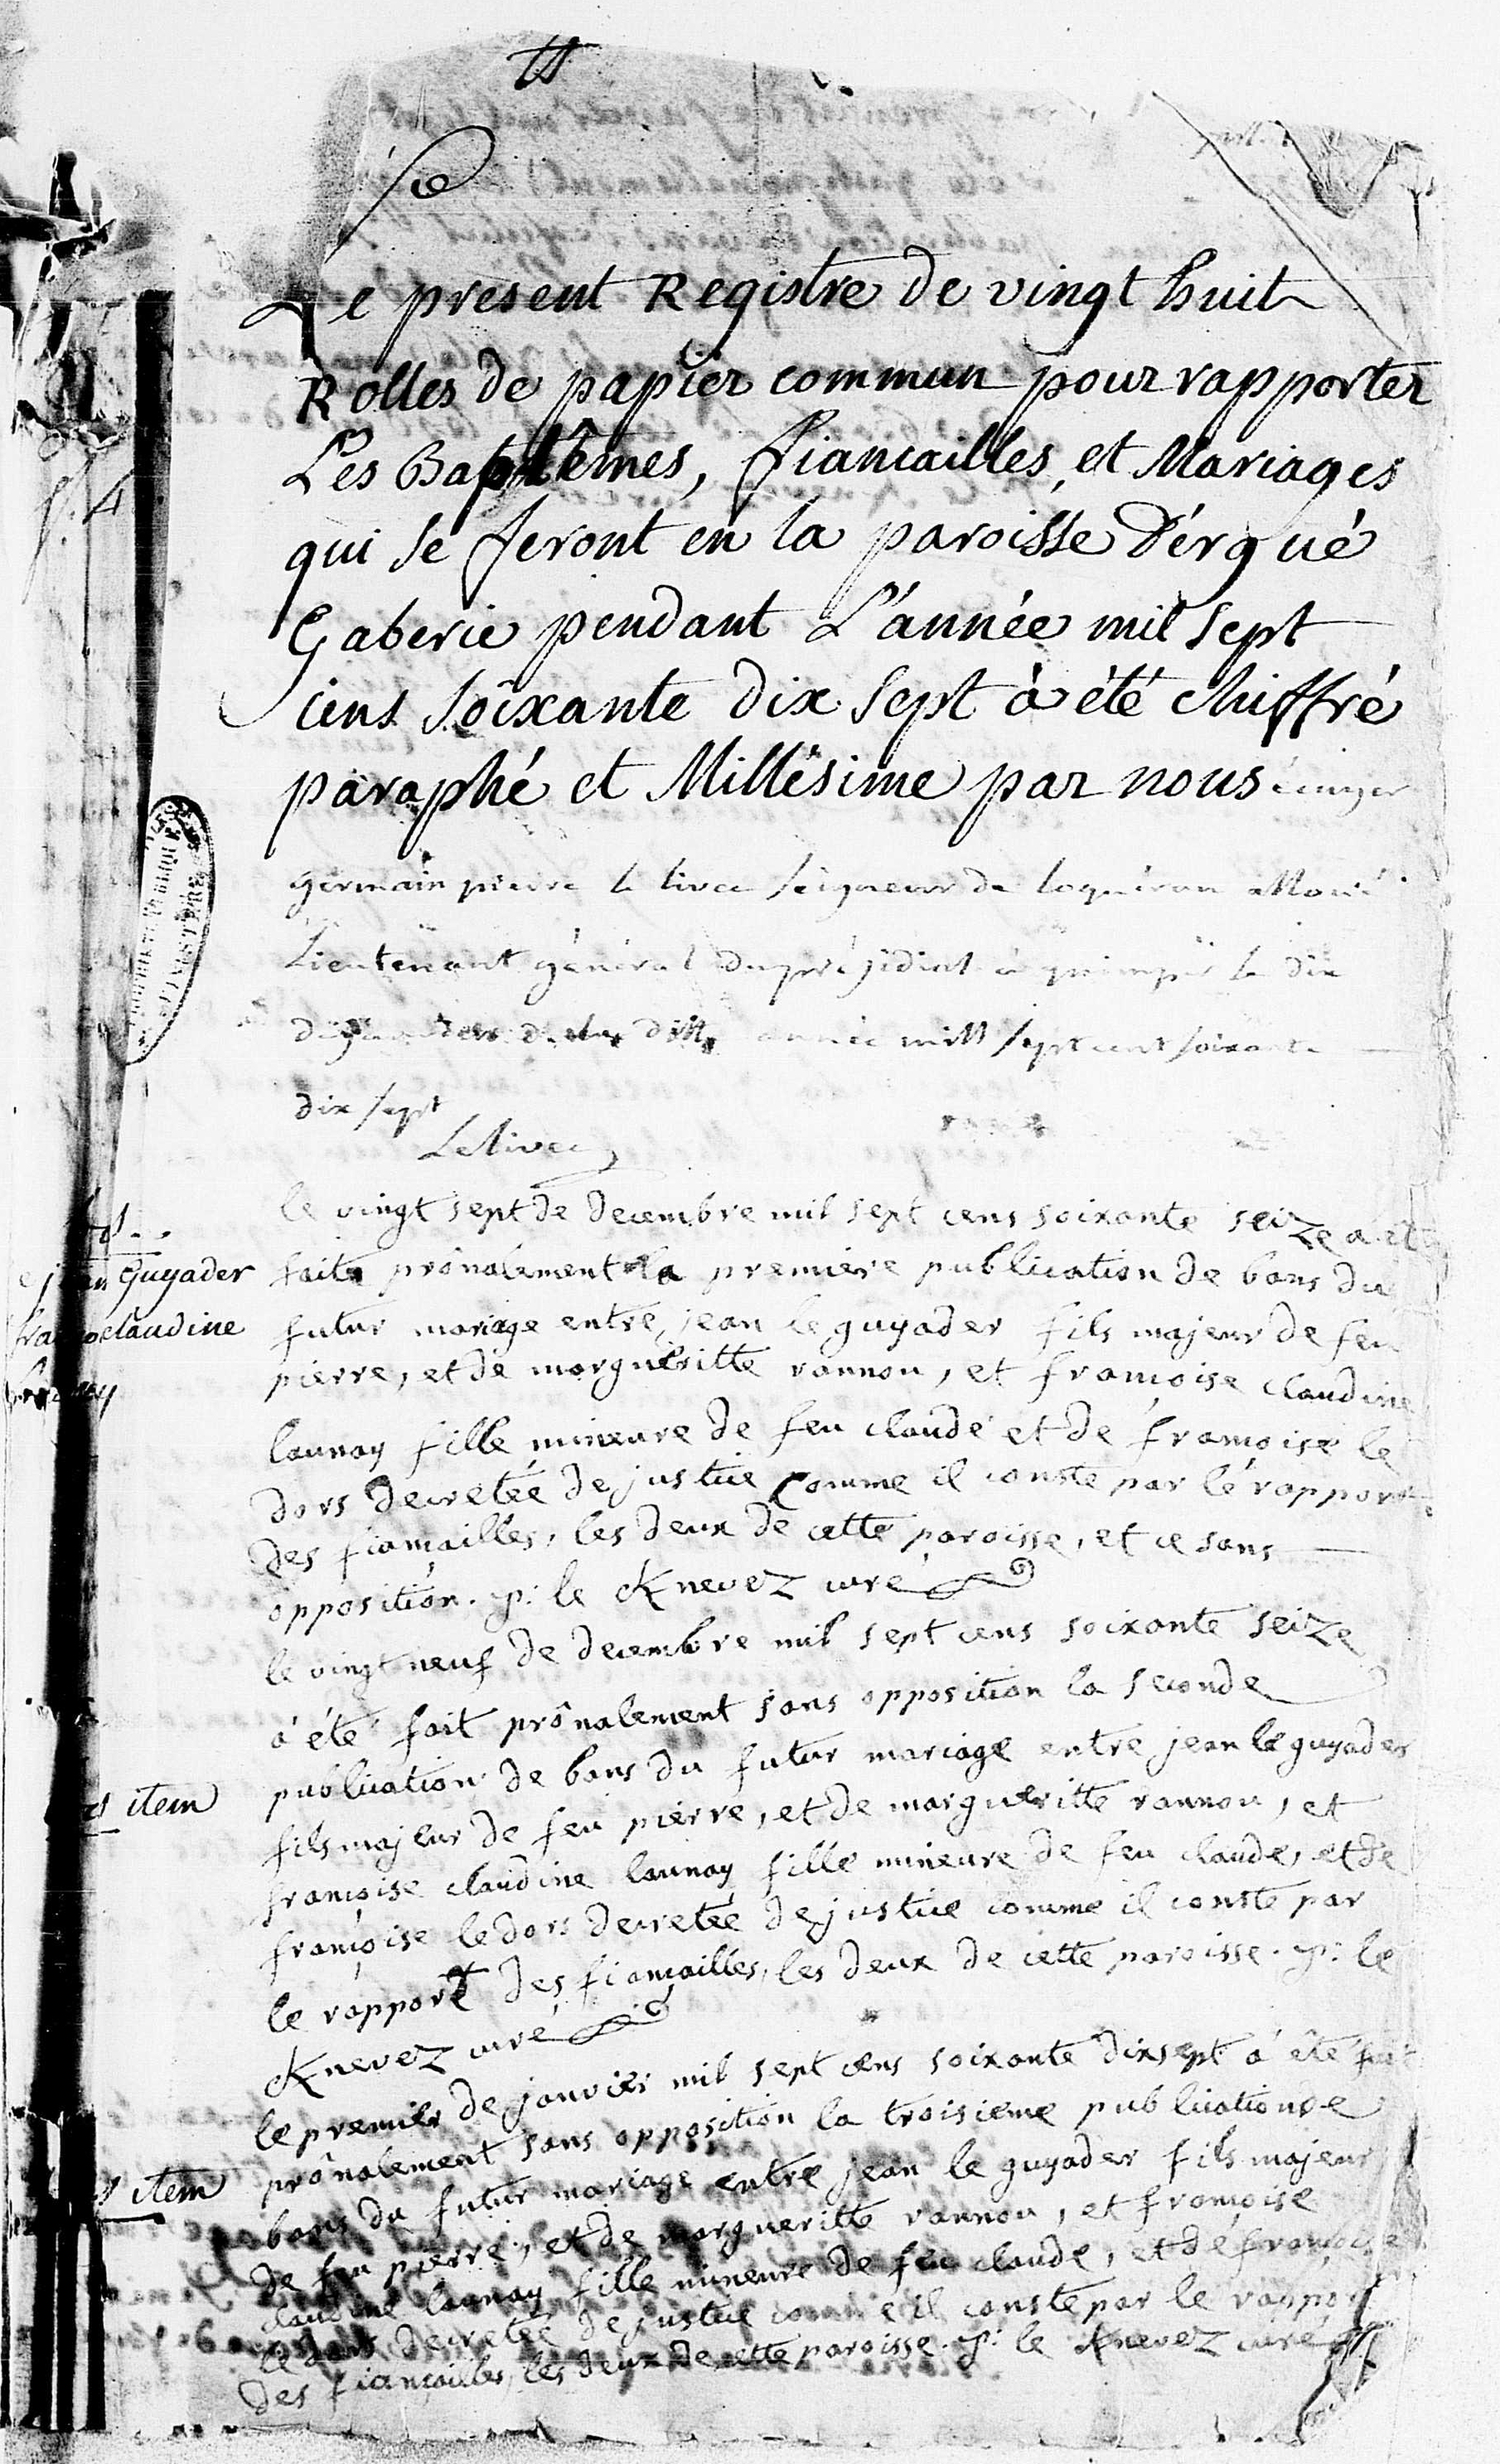 Le présent Registre de vingt huit
Rolles de papier commun pour rapporter
Les Baptêmes, Fiancailles, et Mariages
qui se feront en la paroisse d'érgué
Gaberic pendant L'année mil sept
cens soixante dix sept à été chiffré
paraphé et Millésime par nous écuyer
germain pierre le livec seigneur de loquéran
Lieutenant général du présidial à quimper le dix
année mill sept cent soixante
dix sept
Le livec
le vingt sept de decembre mil sept cens soixante seize a été
jean guyader
faite prônalement la premiere publication de bans du
claudine
futur mariage entre jean le guyader fils majeur de feu
pierre, et de margueritte rannou, et françoise claudine
launay fille mineure de feu claude et de françoise le
dors decretée de justice comme il conste par le rapport
des fiançailles, les deux de cette paroisse, et ce sans
opposition. p: le Knevez curé
le vingt neuf de decembre mil sept cens soixante seize
à été fait prônalement sans opposition la seconde
item
publication de bans du futur mariage entre jean le guyader
fils majeur de feu pierre, et de margueritte rannou, et
françoise claudine launay fille mineure de feu claude, et de
françoise le dors decretée de justice comme il conste par
le rapport des fiançailles, les deux de cette paroisse. p: le
Knevez curé
le premier de janvier mil sept cens soixante dix sept à été fait
prônalement sans opposition la troisieme publication de
item
bans du futur mariage entre jean le guyader fils majeur
de feu pierre, et de margueritte rannou, et françoise
claudine launay fille mineure de feu claude, et de françoise
le dors decretée de justice comme il conste par le rapport
des fiançailles, les deux de cette paroisse. p: le Knevez curé